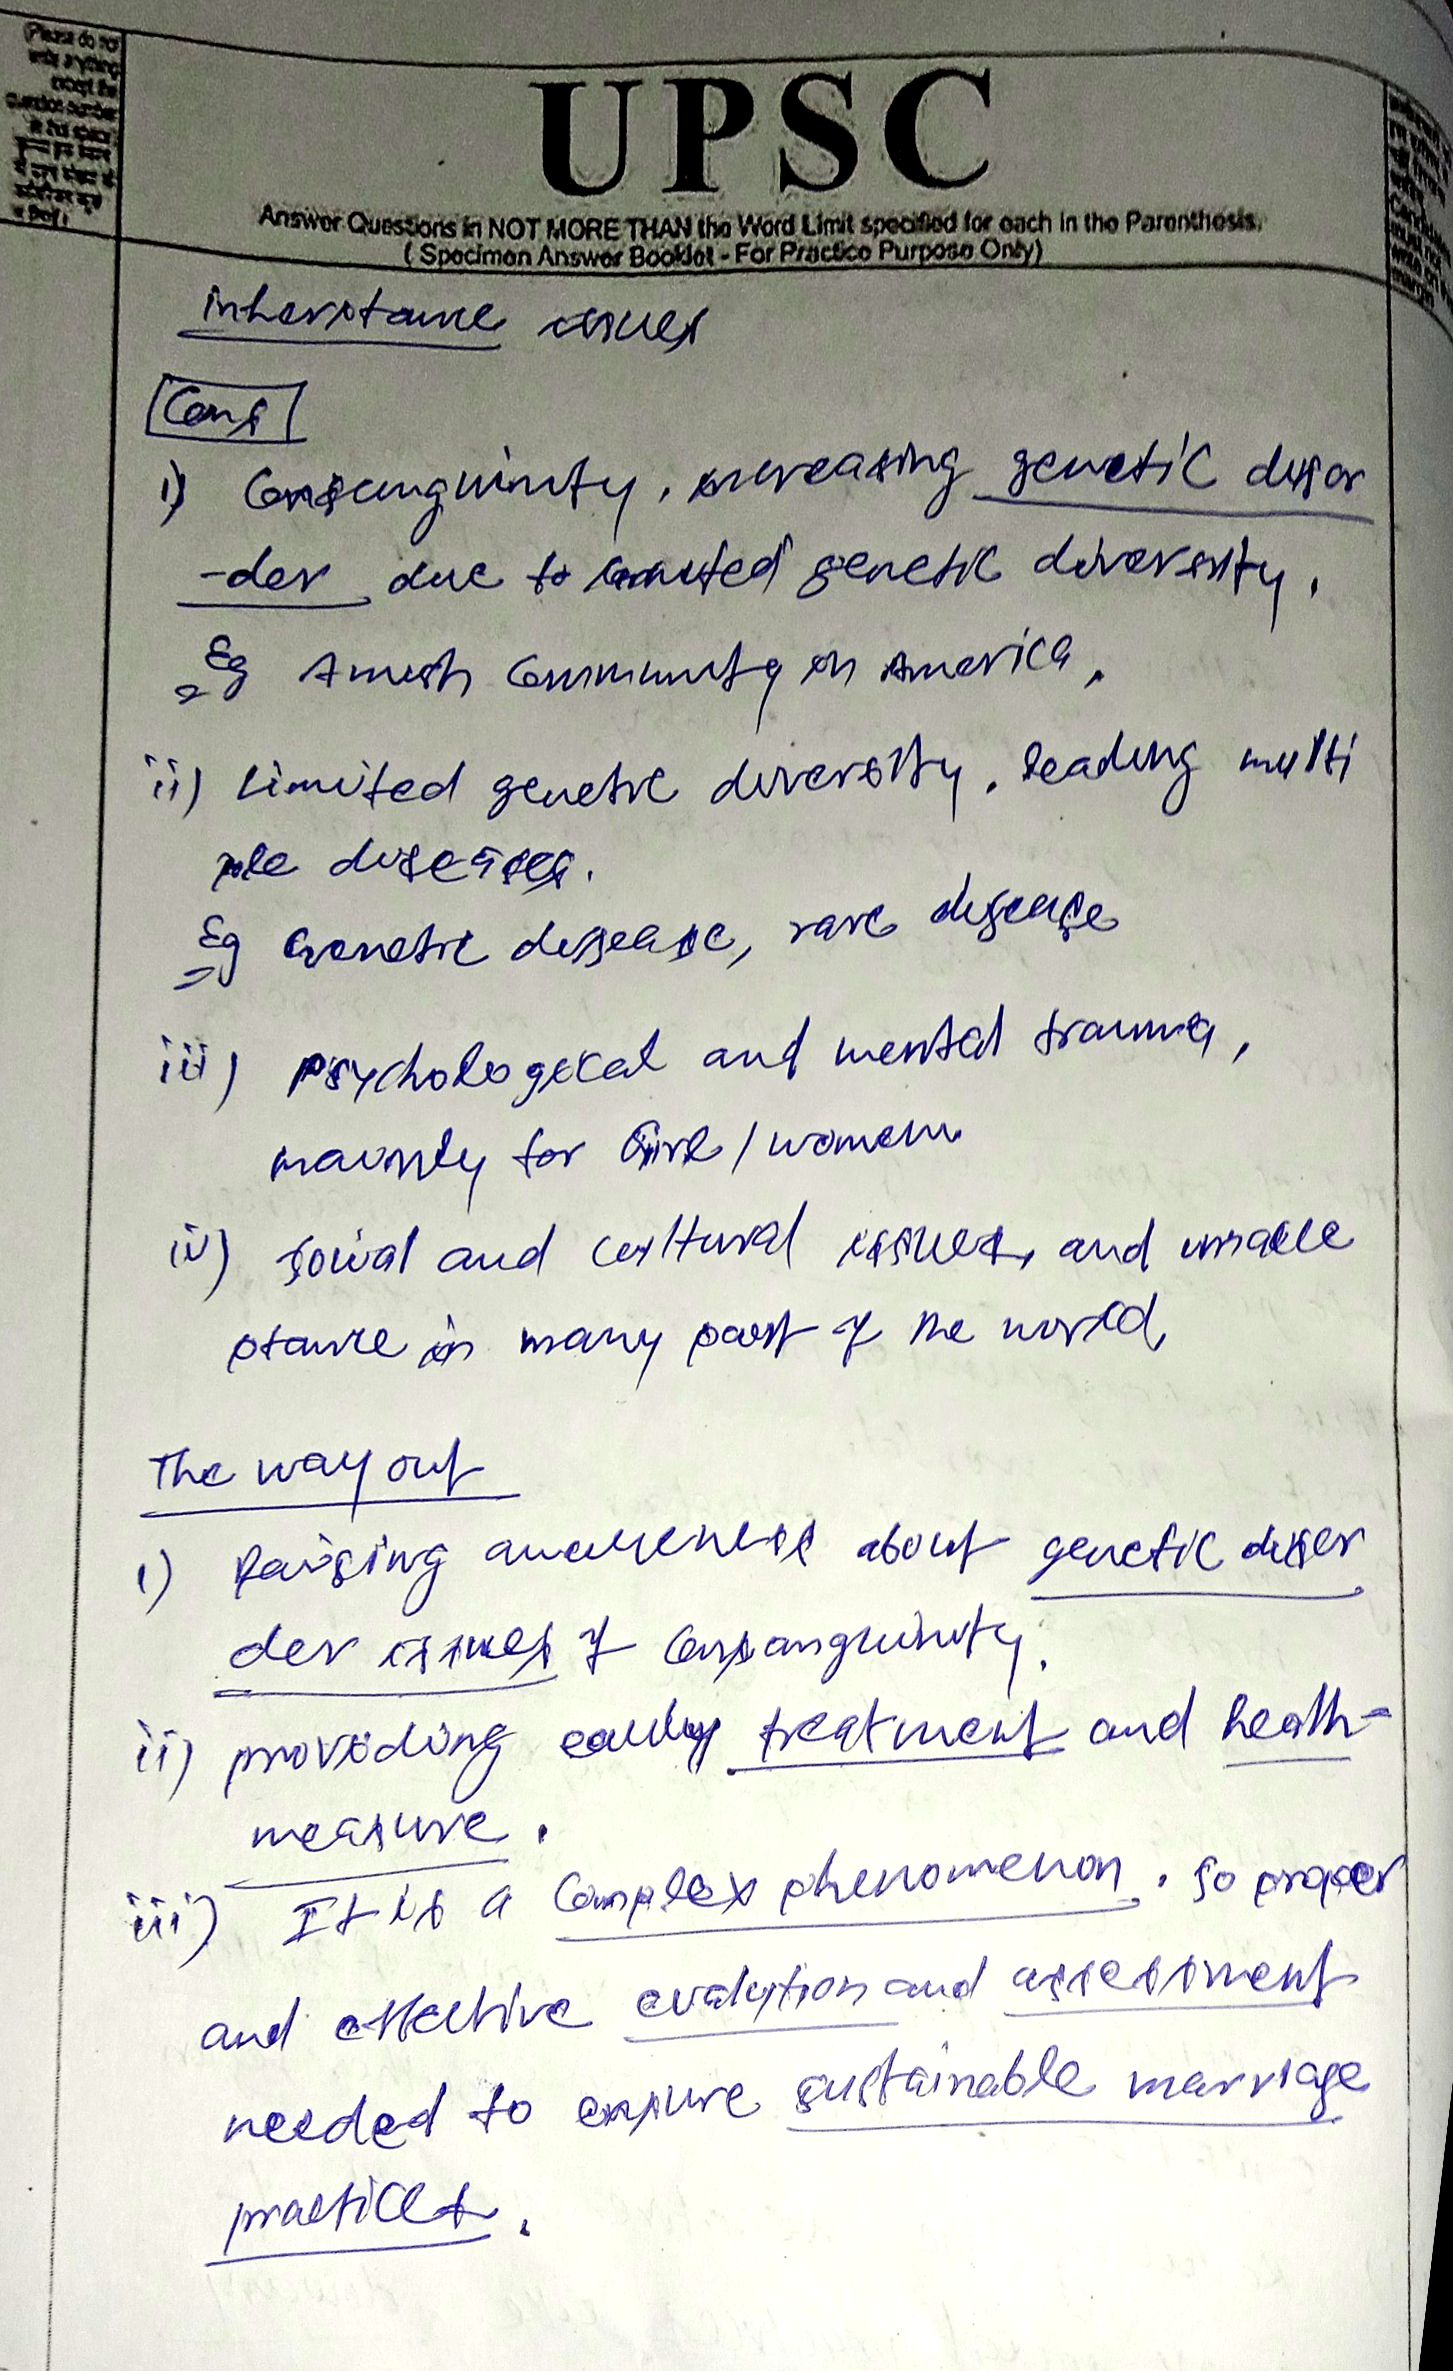 (Please do not
write anything
except the
question number
in this space
UPSC
Answer Questions in NOT MORE THAN the Word Limit specified for each in the Parenthesis.
( Specimen Answer Booklet - For Practice Purpose Only)
inheritance issues
Cons
i) Consanguinity, increasing genetic disor
-der due to limited genetic diversity.
Eg Amish Community in America.
ii) Limited genetic diversity. leading multi
ple diseases.
Eg Genetic disease, rare disease
iii) Psychological and mental trauma,
mainly for Girl / women
iv) Social and cultural issues, and unacce
ptance in many part of the world,
The way out
i) Raising awareness about genetic disor
der issues of Consanguinity.
ii) providing early treatment and health-
measure.
iii) It is a Complex phenomenon. So proper
and effective evalution and assessment
needed to ensure sustainable marriage
practices.